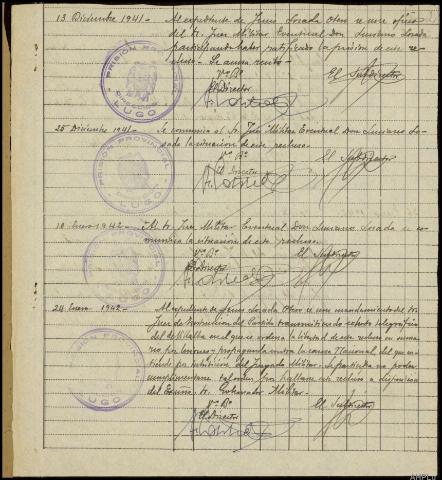 13 Diciembre 1941.- Al expediente de Jesus Losada Otero se une oficio
del Sr. Juez Militar Eventual Don Luciano Losada
participando haber ratificado la prisión de este re-
cluso.- Se acusa recibo.-
Vº Bº
El Director
El Subdirector
PRISION PROVINCIAL
LUGO
25 Diciembre 1941.- Se comunica al Sr. Juez Militar Eventual Don Luciano Lo-
sada la situacion de este recluso.
Vº Bº
El Director
El Subdirector
PRISION PROVINCIAL
LUGO
10 Enero 1942.- Al Sr. Juez Militar Eventual Don Luciano Losada se co-
munica la situación de este recluso.
Vº Bº
El Director
El Subdirector
PRISION PROVINCIAL
LUGO
24 Enero 1942.- Al expediente de Jesus Losada Otero se une mandamiento del Sr.
Juez de Instruccion del Partido transmitiendo exhorto telegráfico
del de Villalba en el que se ordena la libertad de este recluso en suma-
rio por propaganda contra la causa Nacional, del que
Juzgado Militar. Se participa no poder
este recluso a disposicion
del Excmo. Sr. Gobernador Militar.-
Vº Bº
El Director
El Subdirector
PRISION PROVINCIAL
LUGO
AHPLu